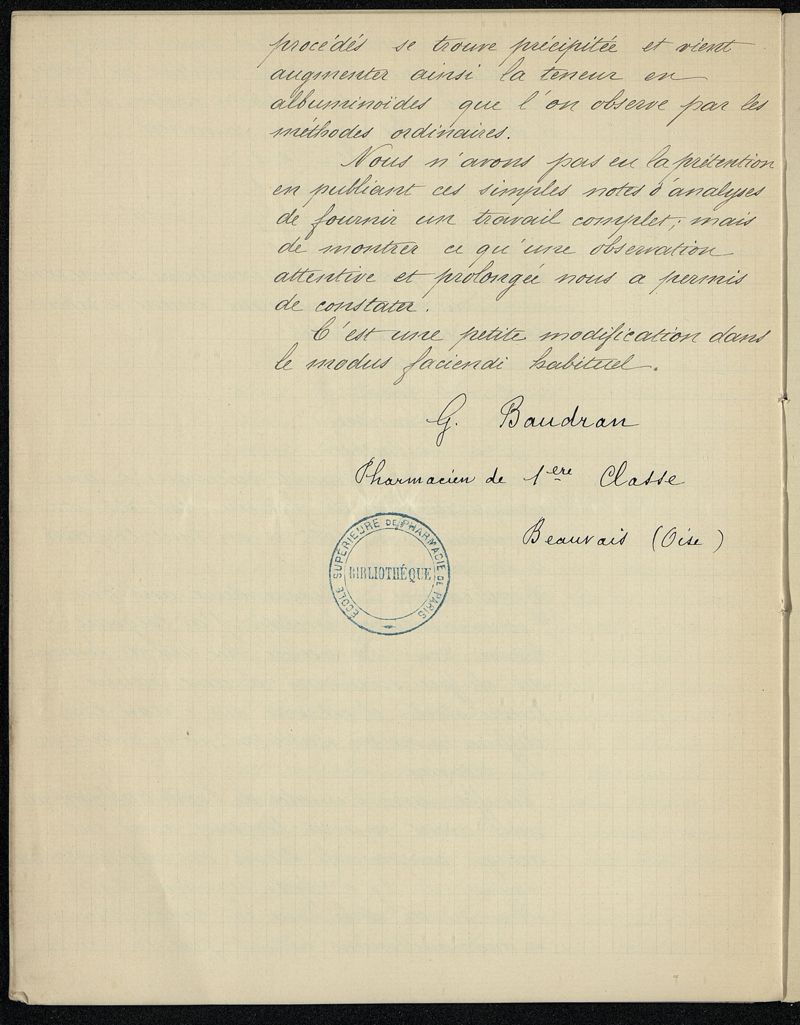 procédés se trouve précipitée et vient
augmenter ainsi la teneur en
albuminoïdes que l'on observe par les
méthodes ordinaires.
Nous n'avons pas eu la prétention
en publiant ces simples notes d'analyses
de fournir un travail complet; mais
de montrer ce qu'une observation
attentive et prolongée nous a permis
de constater.
C'est une petite modification dans
le modus faciendi habituel.
G. Baudran
Pharmacien de 1ère Classe
Beauvais (Oise)
ÉCOLE SUPÉRIEURE DE PHARMACIE DE PARIS
BIBLIOTHÉQUE